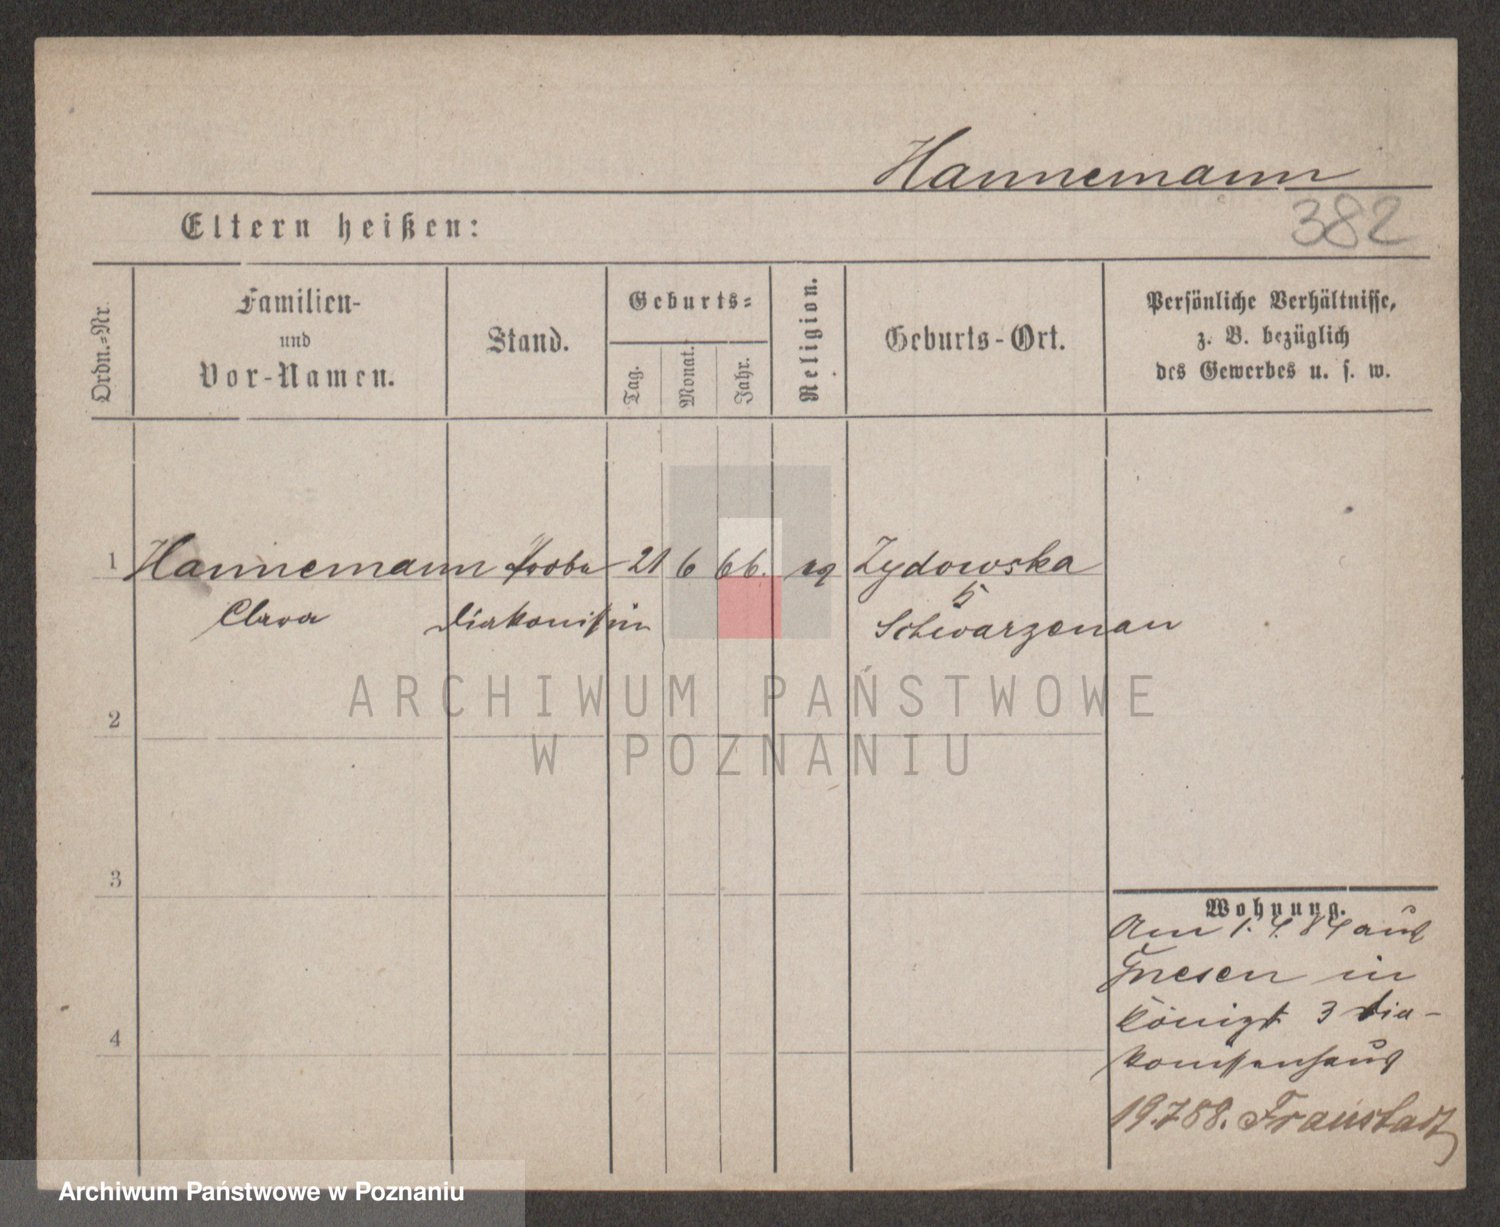 Hannemann
382
Eltern heißen:
Ordn.=Nr.
Familien-
und
Vor-Namen.
Stand.
Geburts=
Tag.
Monat.
Jahr.
Religion.
Geburts-Ort.
Persönliche Verhältnisse,
z. B. bezüglich
des Gewerbes u. s. w.
1 Hannemann Probe 21 6 66. Zydowska
Clara Diakonissin
Schwarzenau
ARCHIWUM PAŃSTWOWE
W POZNANIU
2
3
4
Wohnung.
Am 1. 4. 84 aus
Gnesen in
Königst 3 Dia-
konissenhaus
19.7 88. Fraustadt
Archiwum Państwowe w Poznaniu